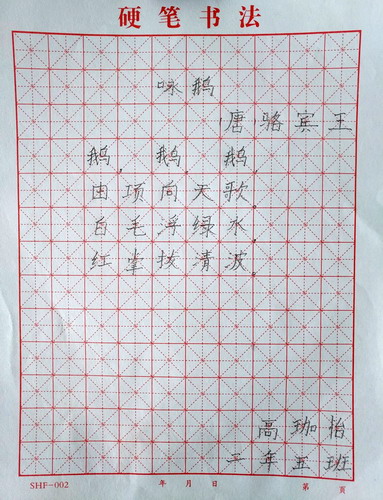 硬笔书法
咏鹅
(唐)骆宾王
鹅,鹅,鹅,
曲项向天歌。
白毛浮绿水,
红掌拨清波。
高珈怡
二年五班
SHF-002 年 月 日 第 页